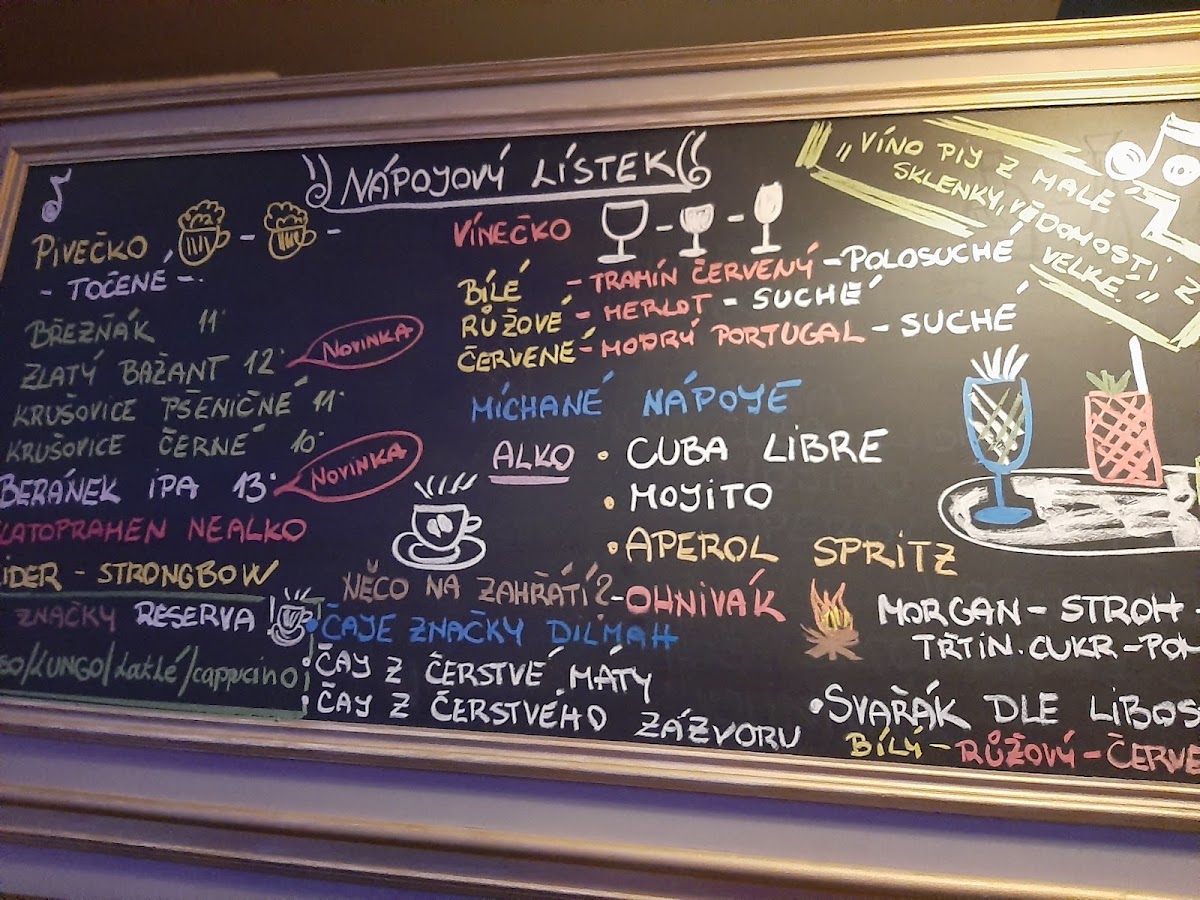 NÁPOJOVÝ LÍSTEK
„VÍNO PIJ Z MALÉ
SKLENKY, VĚDOMOSTI Z
VELKÉ."
PIVEČKO
- TOČENÉ -
BŘEZŇÁK 11°
ZLATÝ BAŽANT 12° NOVINKA
KRUŠOVICE PŠENIČNÉ 11°
KRUŠOVICE ČERNÉ 10°
BERÁNEK IPA 13° NOVINKA
ZLATOPRAMEN NEALKO
CIDER - STRONGBOW
ZNAČKY RESERVA
/LUNGO/Latté/cappucino
VÍNEČKO
BÍLÉ - TRAMÍN ČERVENÝ - POLOSUCHÉ
RŮŽOVÉ - MERLOT - SUCHÉ
ČERVENÉ - MODRÝ PORTUGAL - SUCHÉ
MÍCHANÉ NÁPOJE
ALKO • CUBA LIBRE
• MOJITO
• APEROL SPRITZ
NĚCO NA ZAHŘÁTÍ? - OHNIVÁK
• ČAJE ZNAČKY DILMAH
• ČAJ Z ČERSTVÉ MÁTY
• ČAJ Z ČERSTVÉHO ZÁZVORU
MORGAN - STROH
TŘTIN. CUKR -
• SVAŘÁK DLE
BÍLÝ - RŮŽOVÝ -